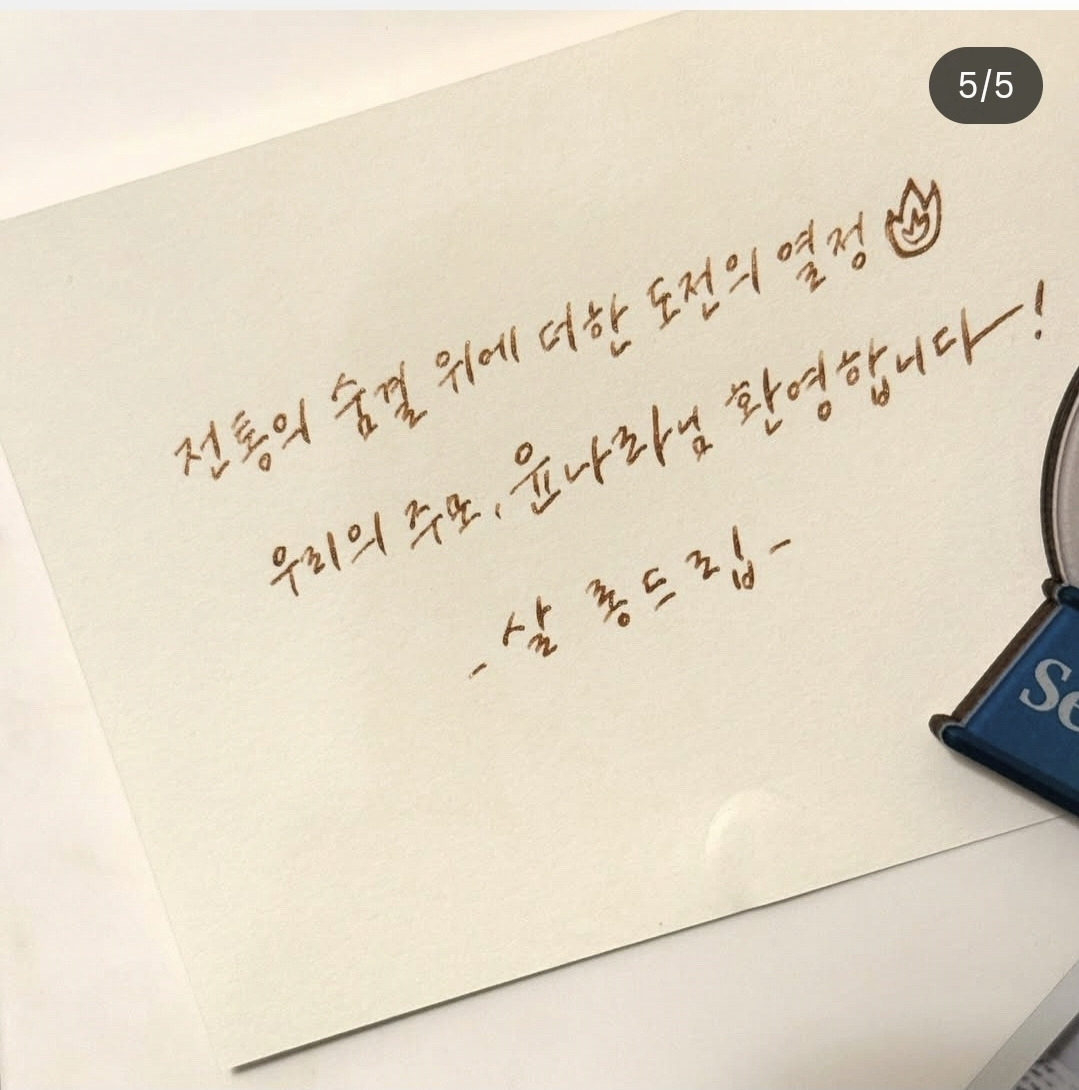 5/5
전통의 숨결 위에 더한 도전의 열정
우리의 주모, 윤나라님 환영합니다~!
- 살롱드립 -
Se